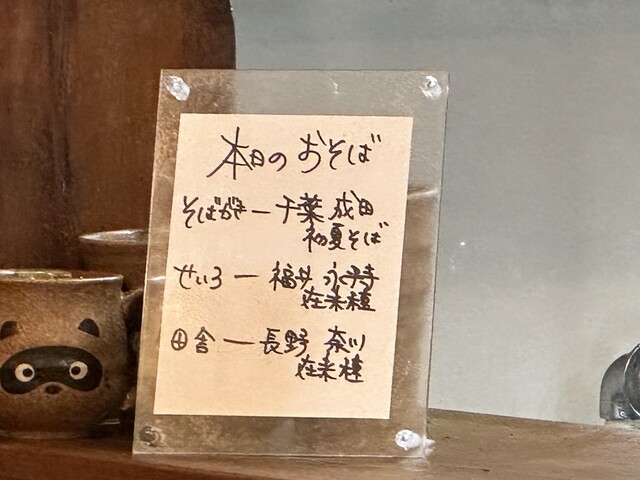 本日のおそば
そばがきー千葉 成田
初夏そば
せいろ ー 福井 永平寺
在来種
田舎 ー 長野 奈川
在来種